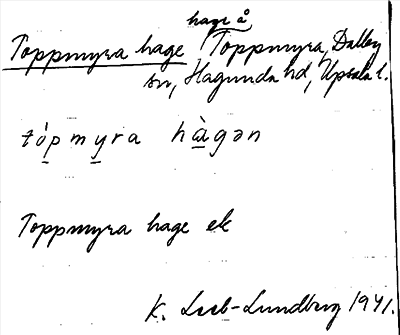 hage å
Toppmyra hage Toppmyra, Dalby
sn, Hagunda hd, Upsala l.
tópmyra hàgən
Toppmyra hage ek
K. Leeb-Lundberg 1941.